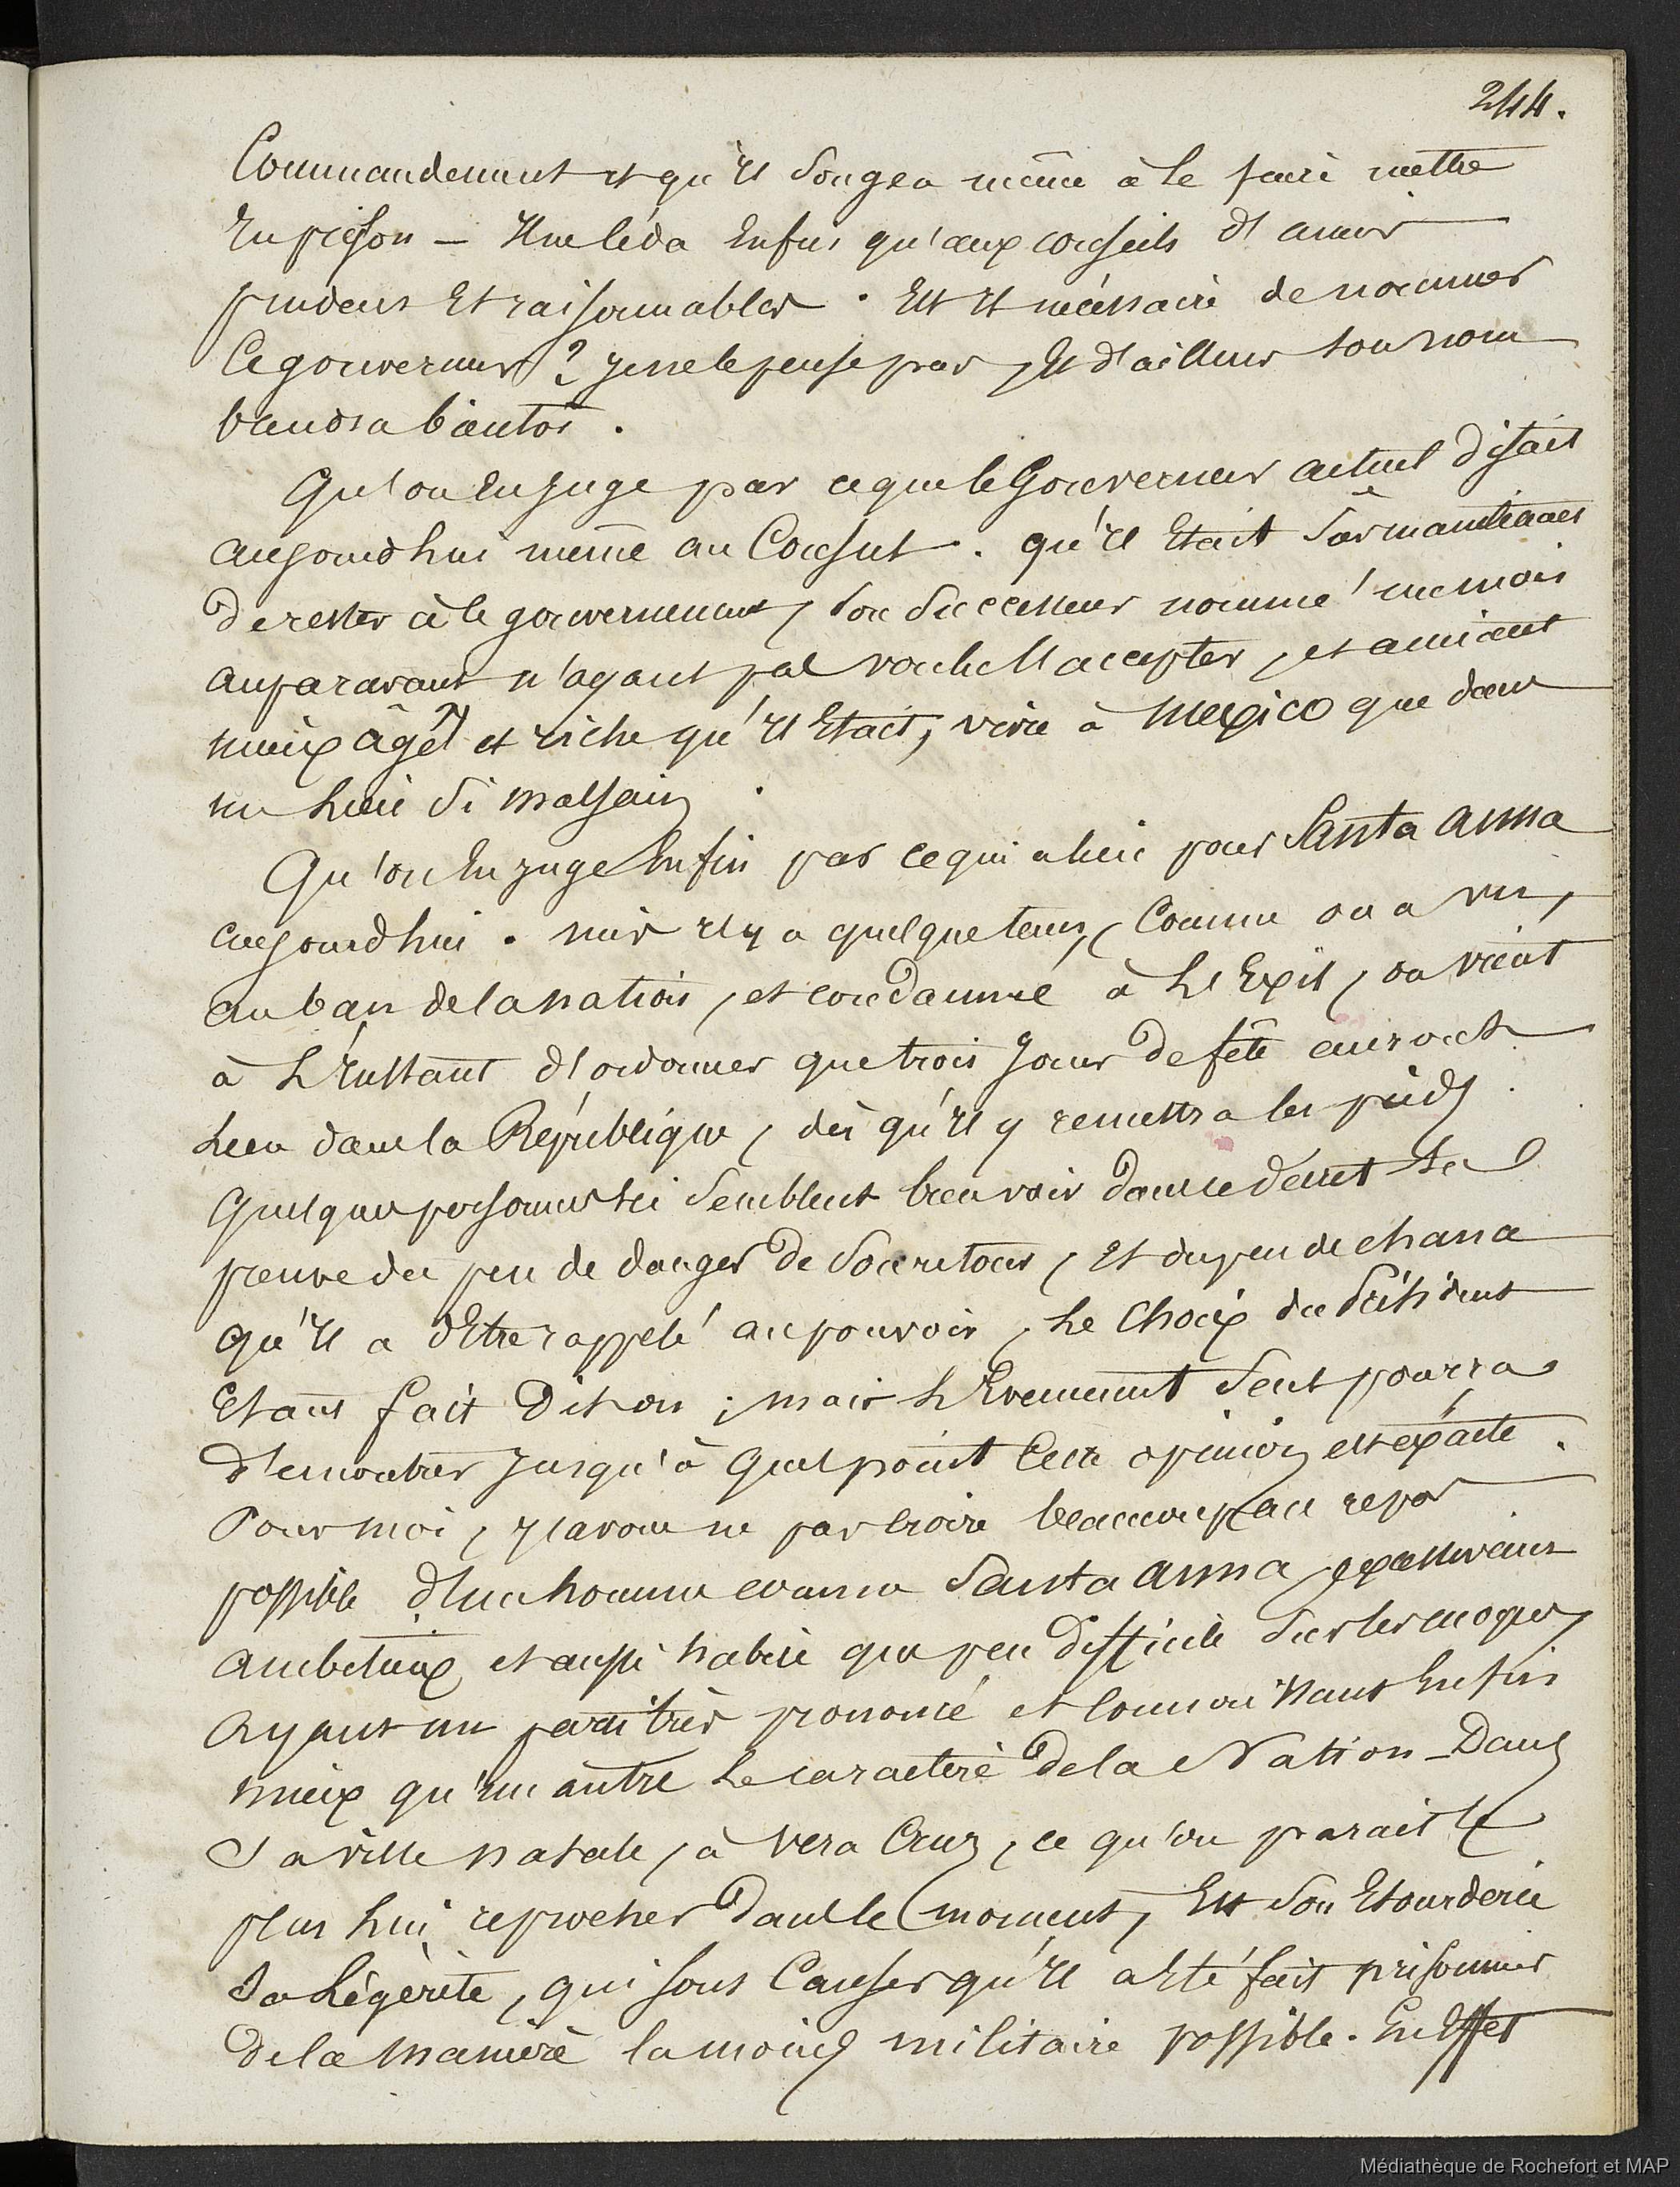 244.
Commandement et qu'il songea même à le faire mettre
En prison — Il ne céda Enfin qu'aux conseils d'amis
prudens Et raisonnables. Est il nécessaire de nommer
Ce gouverneur ? Je ne le pense pas, Et d'ailleurs son nom
viendra bientôt.
Qu'on En Juge par ce que le Gouverneur actuel disait
aujourd'hui même au Consul. qu'il Etait
De rester à le gouvernement, son successeur nommé un mois
auparavant n'ayant pas voulu l'accepter, et aimant
mieux âgé et riche qu'il Etait, vivre à Mexico que dans
un lieu si malsain.
Qu'on En Juge Enfin par ce qui a lieu pour Santa Anna
aujourd'hui. mis il y a quelque tems, Comme on a vu,
au ban de la nation, et condamné à L'Exil, on vient
à L'Instant d'ordonner que trois Jours De fête auront
Lieu dans la République, dès qu'il y remettra les pieds.
Quelques personnes ici semblent bien voir dans ce décret la
preuve du peu de danger De son retour, Et du peu de chance
qu'il a d'Etre rappelé au pouvoir, Le Choix du Président
Etant fait Dit on ; mais L'Evenement seul pourra
démontrer Jusqu'à Quel point Cette opinion est exacte.
Pour moi, J'avoue ne pas croire beaucoup au repos
possible d'un homme comme Santa Anna, excessivement
ambitieux et aussi habile que peu difficile sur les moyens,
Ayant un parti très prononcé et connaissant Enfin
mieux qu'un autre Le caractère de la Nation — Dans
sa ville natale, à Vera Cruz, ce qu'on parait le
plus Lui reprocher Dans le moment, Est son Etourderie
sa Légèreté, qui sont Causes qu'il a Eté fait prisonnier
De la Manière la moins militaire possible. En Effet
Médiathèque de Rochefort et MAP